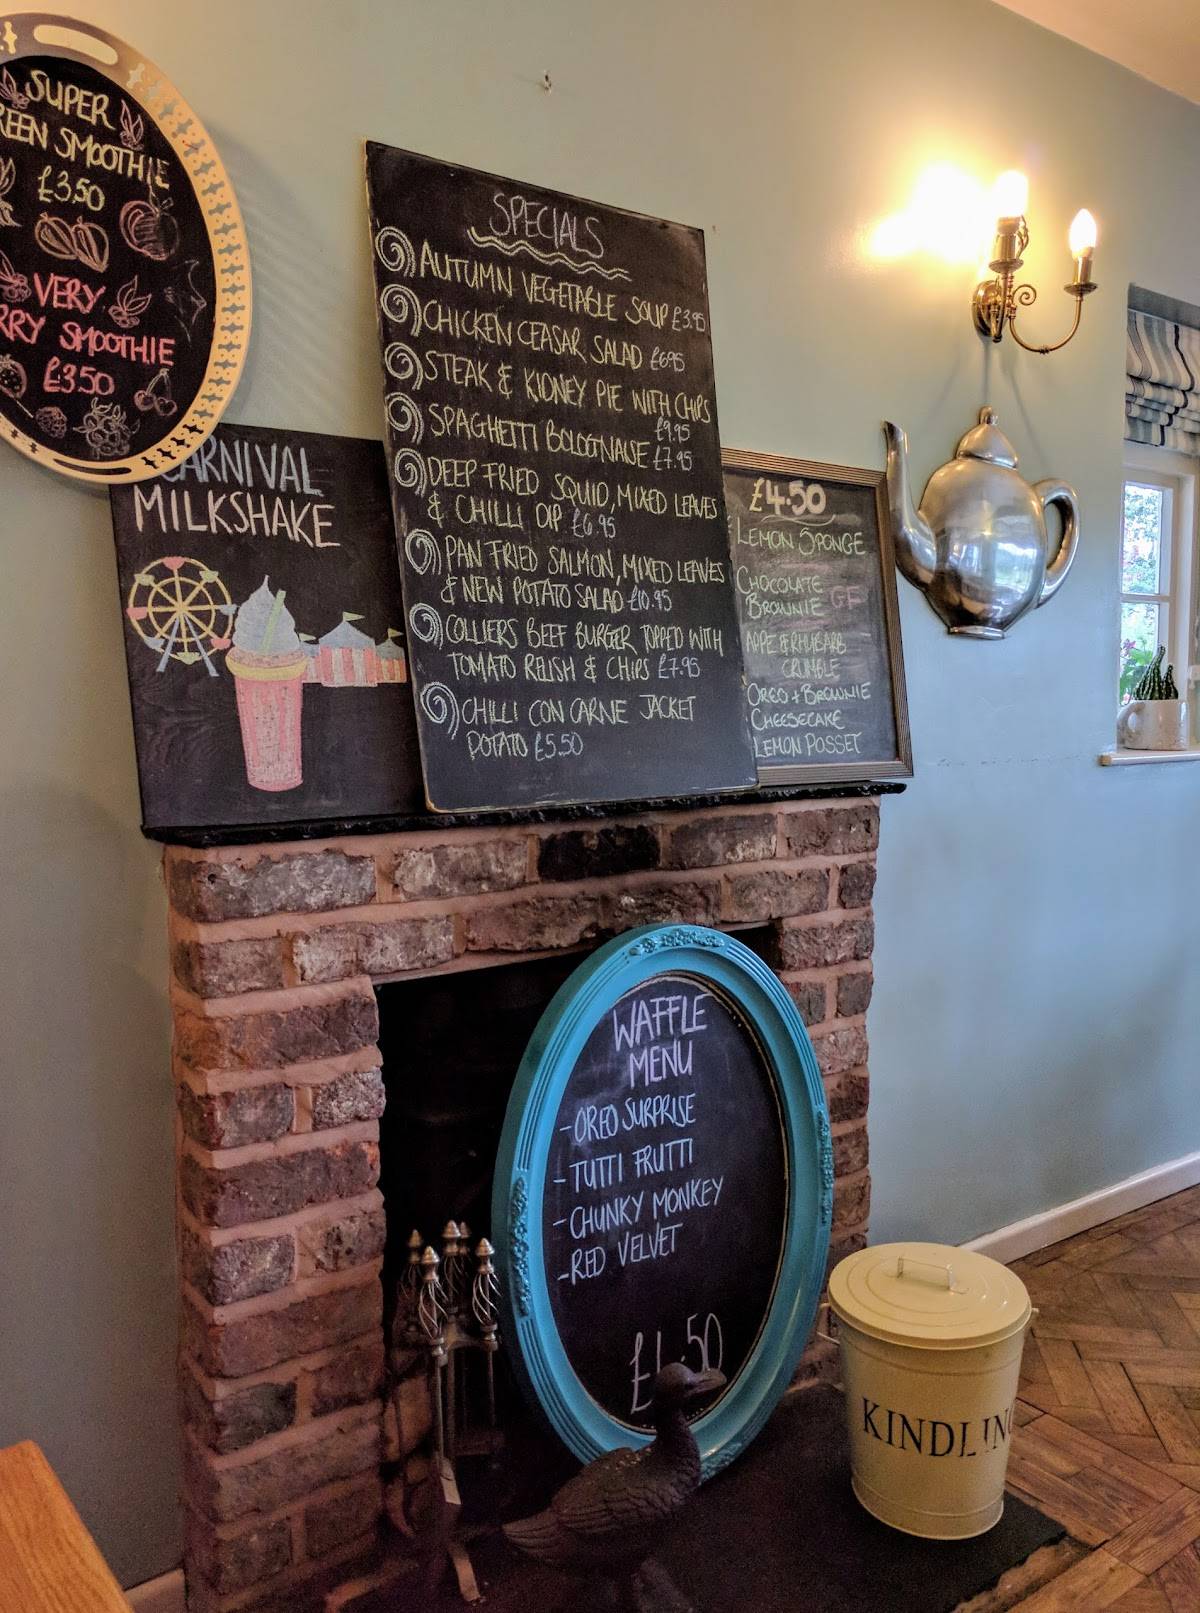 SUPER
SMOOTHIE
£3.50
VERY
SMOOTHIE
£3.50
CARNIVAL
MILKSHAKE
SPECIALS
AUTUMN VEGETABLE SOUP £3.95
CHICKEN CEASAR SALAD £6.95
STEAK & KIDNEY PIE WITH CHIPS
£9.95
SPAGHETTI BOLOGNAISE £7.95
DEEP FRIED SQUID, MIXED LEAVES
& CHILLI DIP £6.95
PAN FRIED SALMON, MIXED LEAVES
& NEW POTATO SALAD £10.95
COLLIERS BEEF BURGER TOPPED WITH
TOMATO RELISH & CHIPS £7.95
CHILLI CON CARNE JACKET
POTATO £5.50
£4.50
LEMON SPONGE
CHOCOLATE
BROWNIE GF
APPLE & RHUBARB
CRUMBLE
OREO + BROWNIE
CHEESECAKE
LEMON POSSET
WAFFLE
MENU
- OREO SURPRISE
- TUTTI FRUTTI
- CHUNKY MONKEY
- RED VELVET
KINDLING